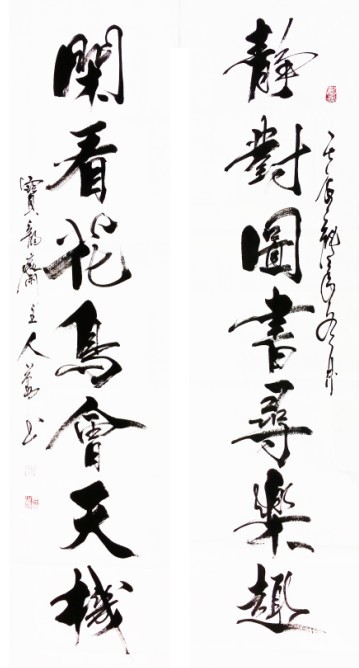 靜對圖書尋樂趣
閑看花鳥會天機
寶龍齋主人